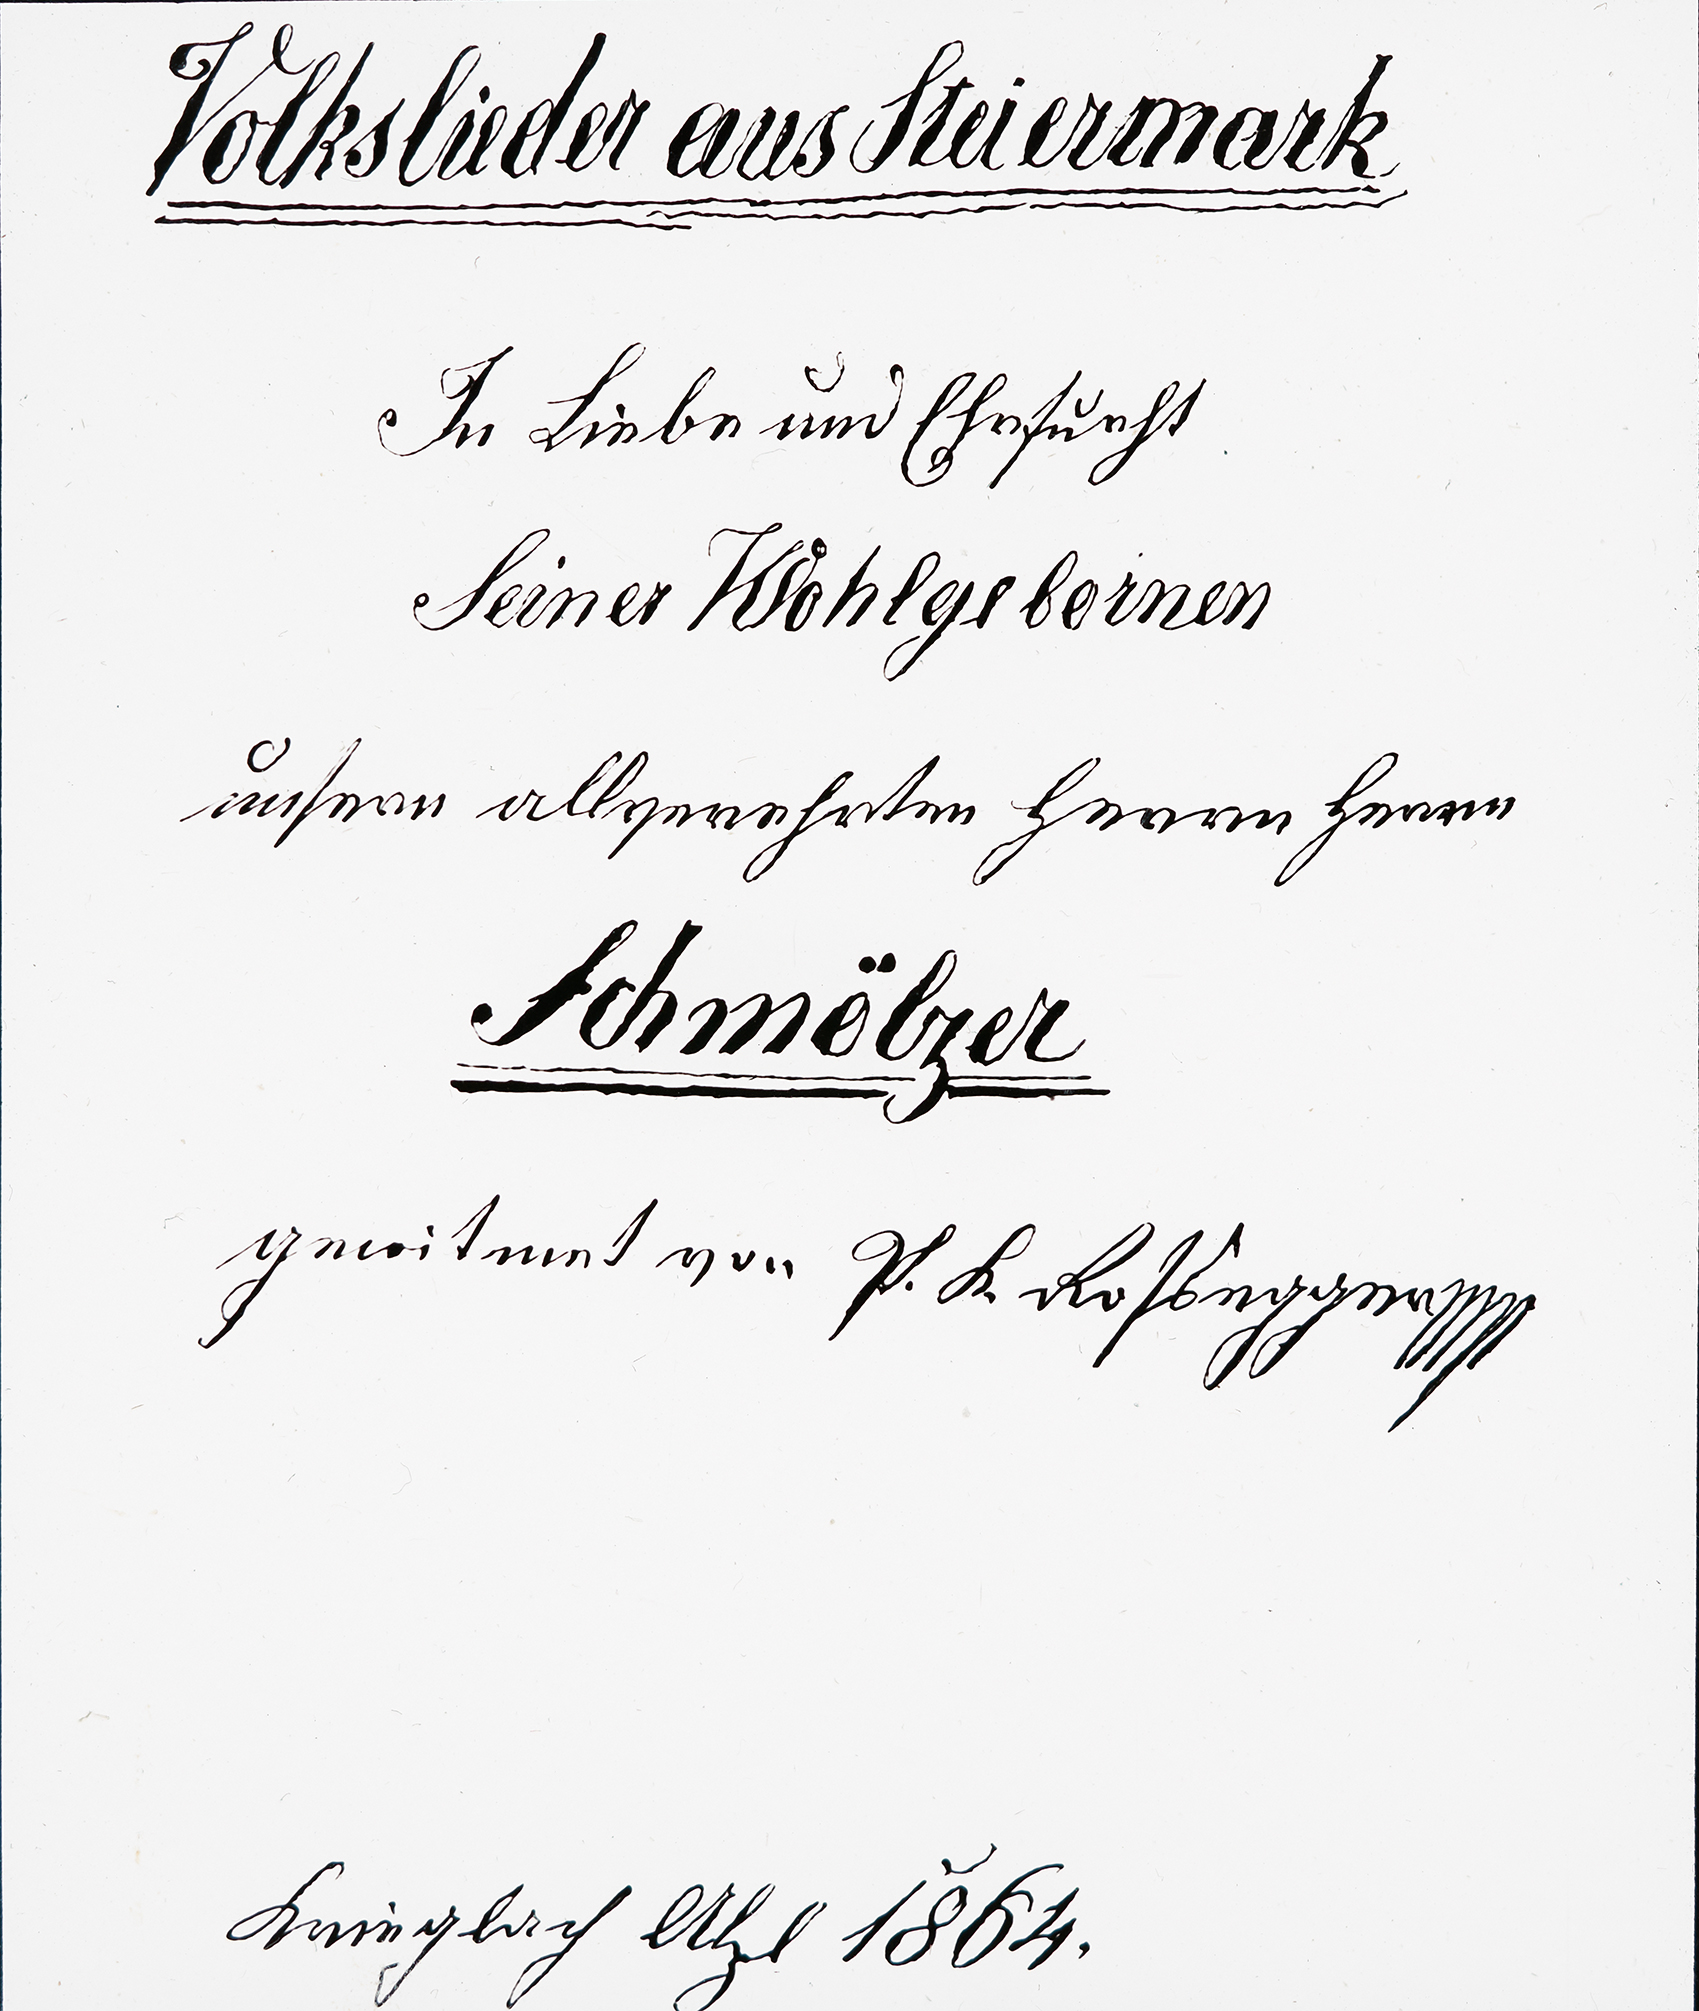 Volkslieder aus Steiermark
In Liebe und Ehrfurcht
Seiner Wohlgebornen
unsern allverehrten Herrn Herrn
Schmölzer
gewitmet von P. K. Roßegger
Krieglach 1864.